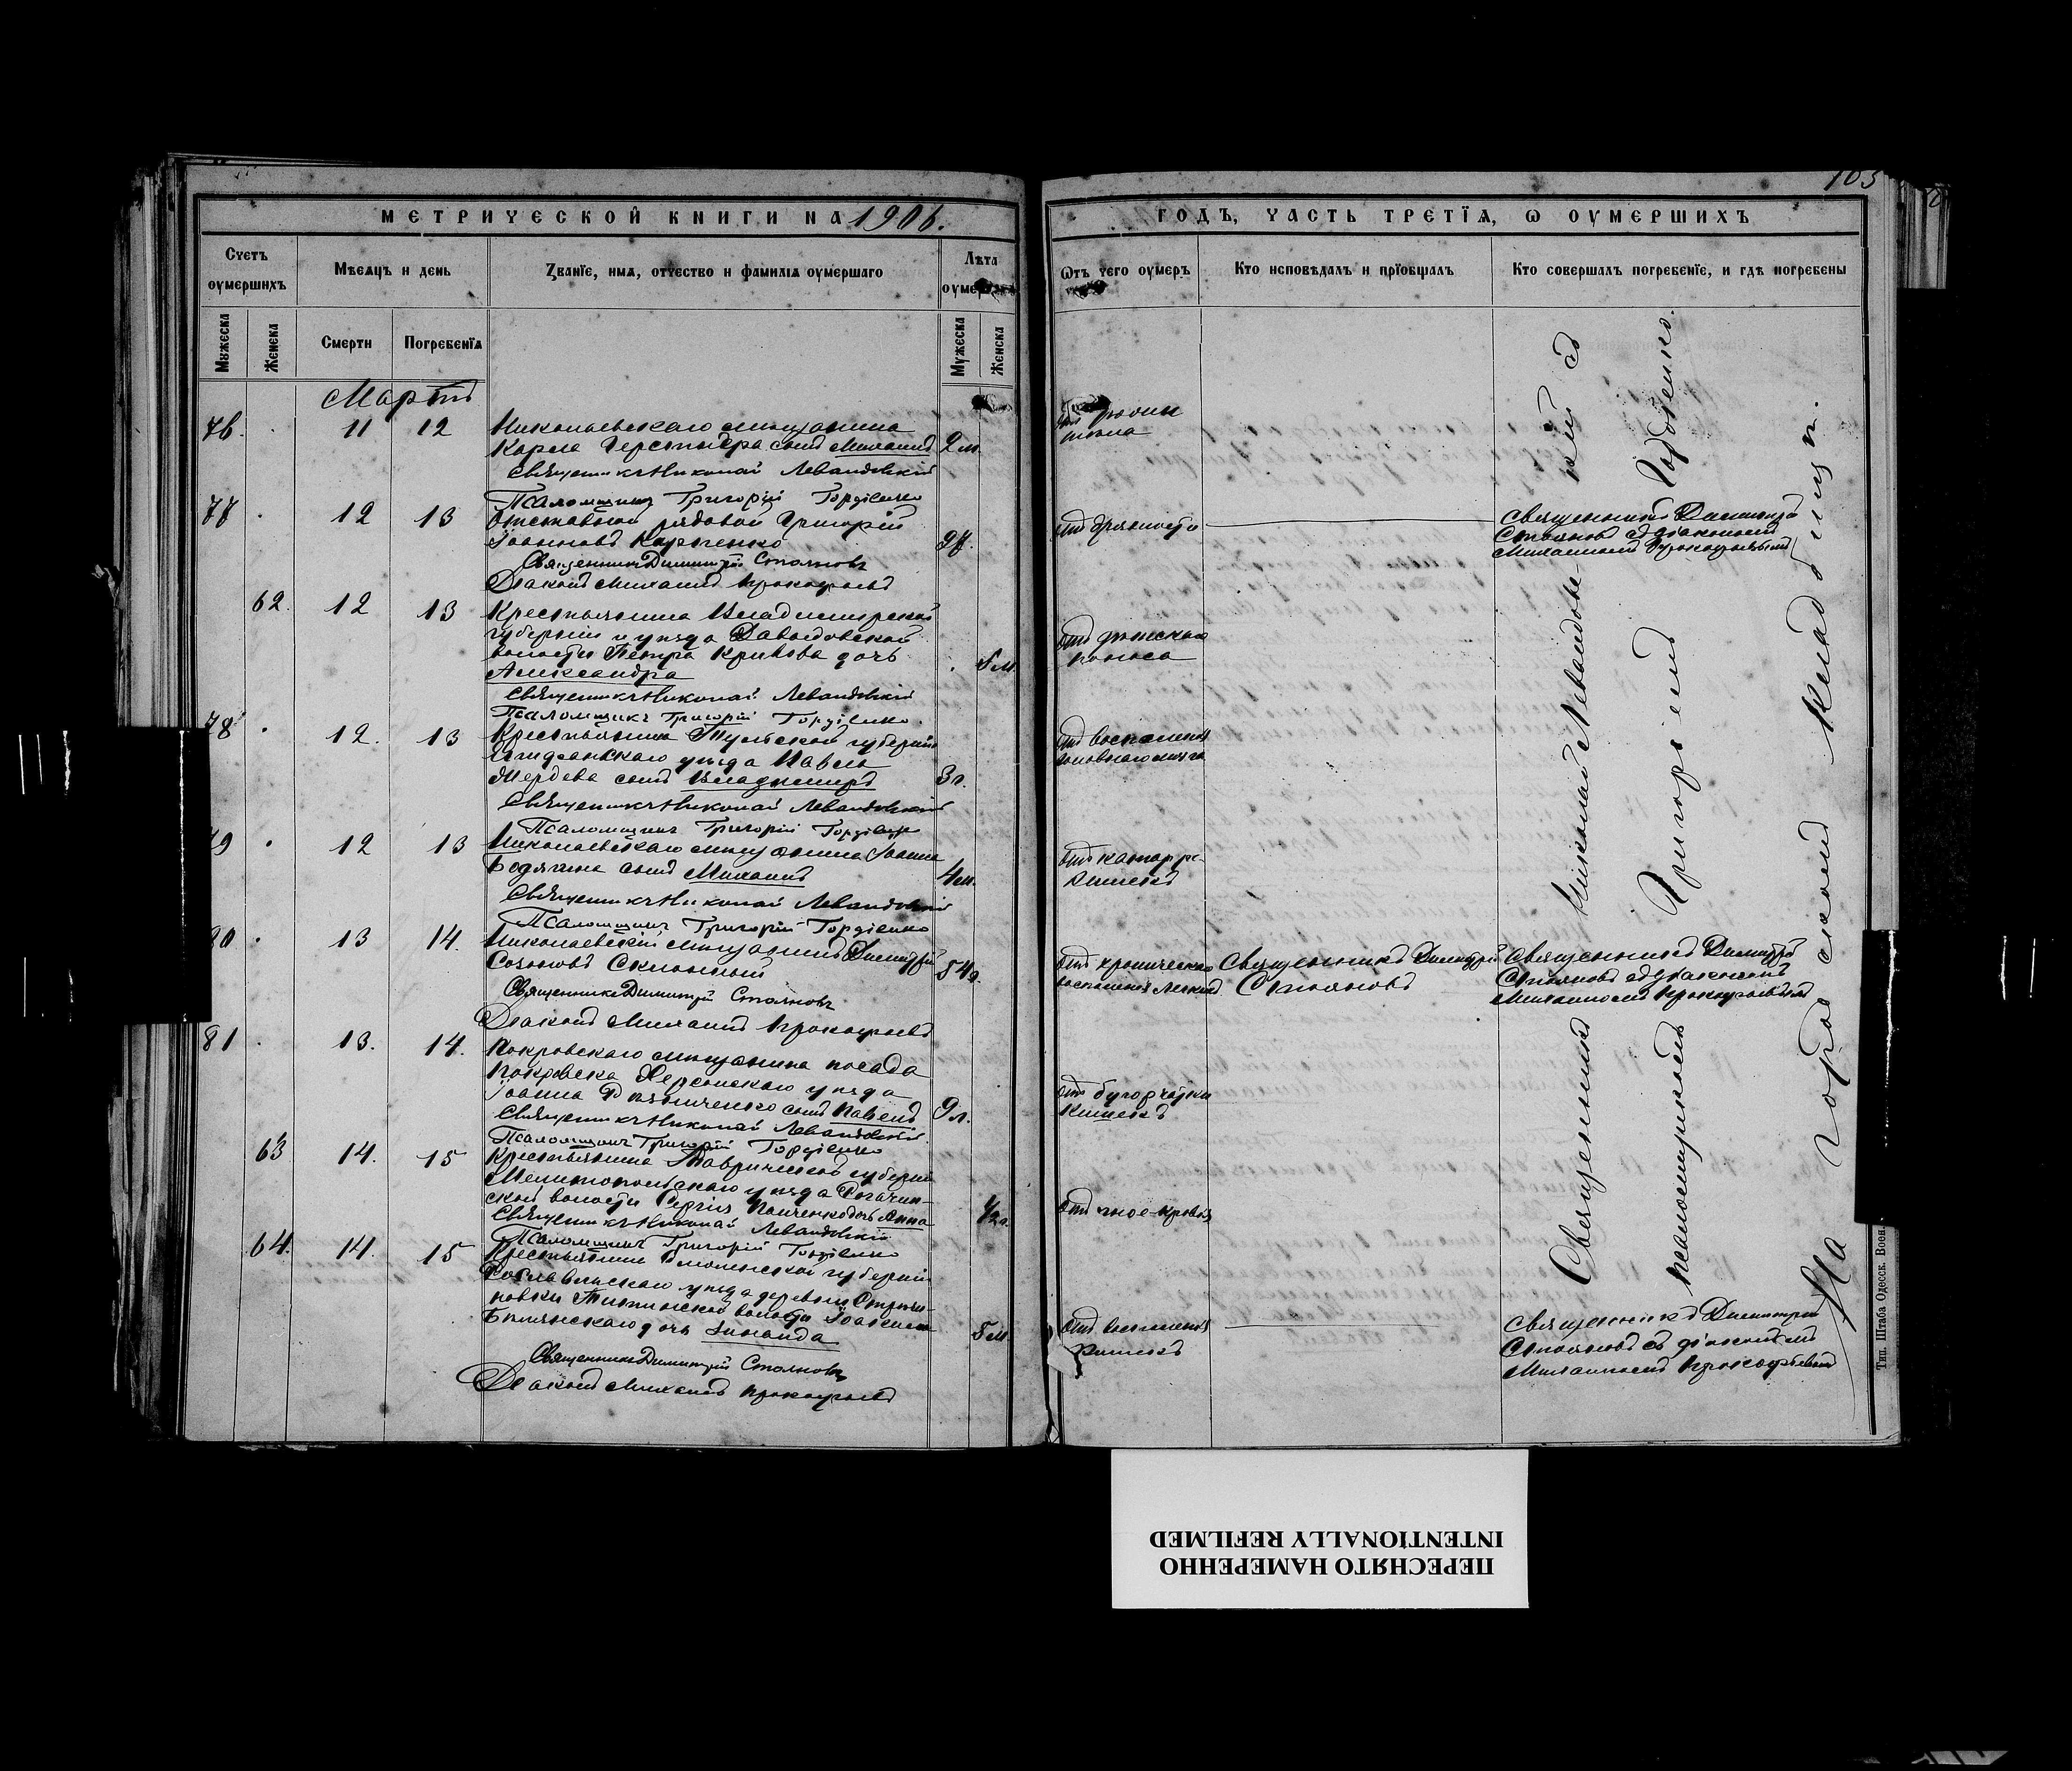 МЕТРИЧЕСКОЙ КНИГИ НА 1906.
Счетъ оумершихъ
Мѣсяцъ и день
Званїе, имя, отчество и фамилїя оумершаго
Лѣта
Мужеска
Женска
Смерти
Погребенїя
Мужеска
Женска
Мартъ
76. 11 12 Николаевскаго мѣщанина
Карла сынъ Михаилъ 2 м.
Священникъ Николай Левандовскій
Псаломщикъ Григорій Гордіенко
77 12 13 Отставной рядовой Григорій
Іоанновъ Карпенко
Священникъ Димитрій Стояновъ
Діаконъ Михаилъ Прокофьевъ
62. 12 13 Крестьянина Владимірской
губерніи и уѣзда Давыдовской
волости Петра Крикова дочь
Александра 5 м.
Священникъ Николай Левандовскій
Псаломщикъ Григорій Гордіенко
78 12. 13 Крестьянина Тульской губерніи
уѣзда Павла
сынъ Владиміръ 3 г.
Священникъ Николай Левандовскій
Псаломщикъ Григорій Гордіенко
79 12 13 Николаевскаго мѣщанина Іоанна
сынъ Михаилъ 4 м.
Священникъ Николай Левандовскій
Псаломщикъ Григорій Гордіенко
80 13 14. Николаевскій мѣщанинъ Димитрій
54 г.
Священникъ Димитрій Стояновъ
Діаконъ Михаилъ Прокофьевъ
81 13. 14. Покровскаго мѣщанина посада
Покровска Херсонскаго уѣзда
Іоанна сынъ Павелъ 9 м.
Священникъ Николай Левандовскій
Псаломщикъ Григорій Гордіенко
63 14. 15 Крестьянина Таврической губерніи
Мелитопольскаго уѣзда Рогачин-
ской волости Сергія дочь Анна
Священникъ Николай Левандовскій
Псаломщикъ Григорій Гордіенко
64. 14. 15 Крестьянина Смоленской губерніи
Рославльскаго уѣзда деревни
волости
дочь Зинаида 5 м.
Священникъ Димитрій Стояновъ
Діаконъ Михаилъ Прокофьевъ
103
ГОДЪ, ЧАСТЬ ТРЕТЇЯ, Ѡ ОУМЕРШИХЪ
Ѿтъ чего оумеръ
Кто исповѣдалъ и прїобщалъ
Кто совершалъ погребенїе, и гдѣ погребены
отъ дряхлости
Священникъ Димитрій
Стояновъ съ діакономъ
Михаиломъ Прокофьевымъ
отъ дѣтскаго
поноса
отъ воспаленія
головнаго мозга
отъ катарра
кишекъ
отъ хроническаго
воспаленія легкихъ
Священникъ Димитрій
Стояновъ
Священникъ Димитрій
Стояновъ съ діакономъ
Михаиломъ Прокофьевымъ
отъ бугорчатки
кишекъ
отъ гное-кровія
отъ воспаленія
кишекъ
Священникъ Димитрій
Стояновъ съ діакономъ
Михаиломъ Прокофьевымъ
Священникъ Николай Левандовскій съ
псаломщикомъ Григоріемъ Гордіенко.
На городскомъ кладбищѣ.
Тип. Штаба Одесск. Воен.
ПЕРЕСНЯТО НАМЕРЕННО
INTENTIONALLY REFILMED